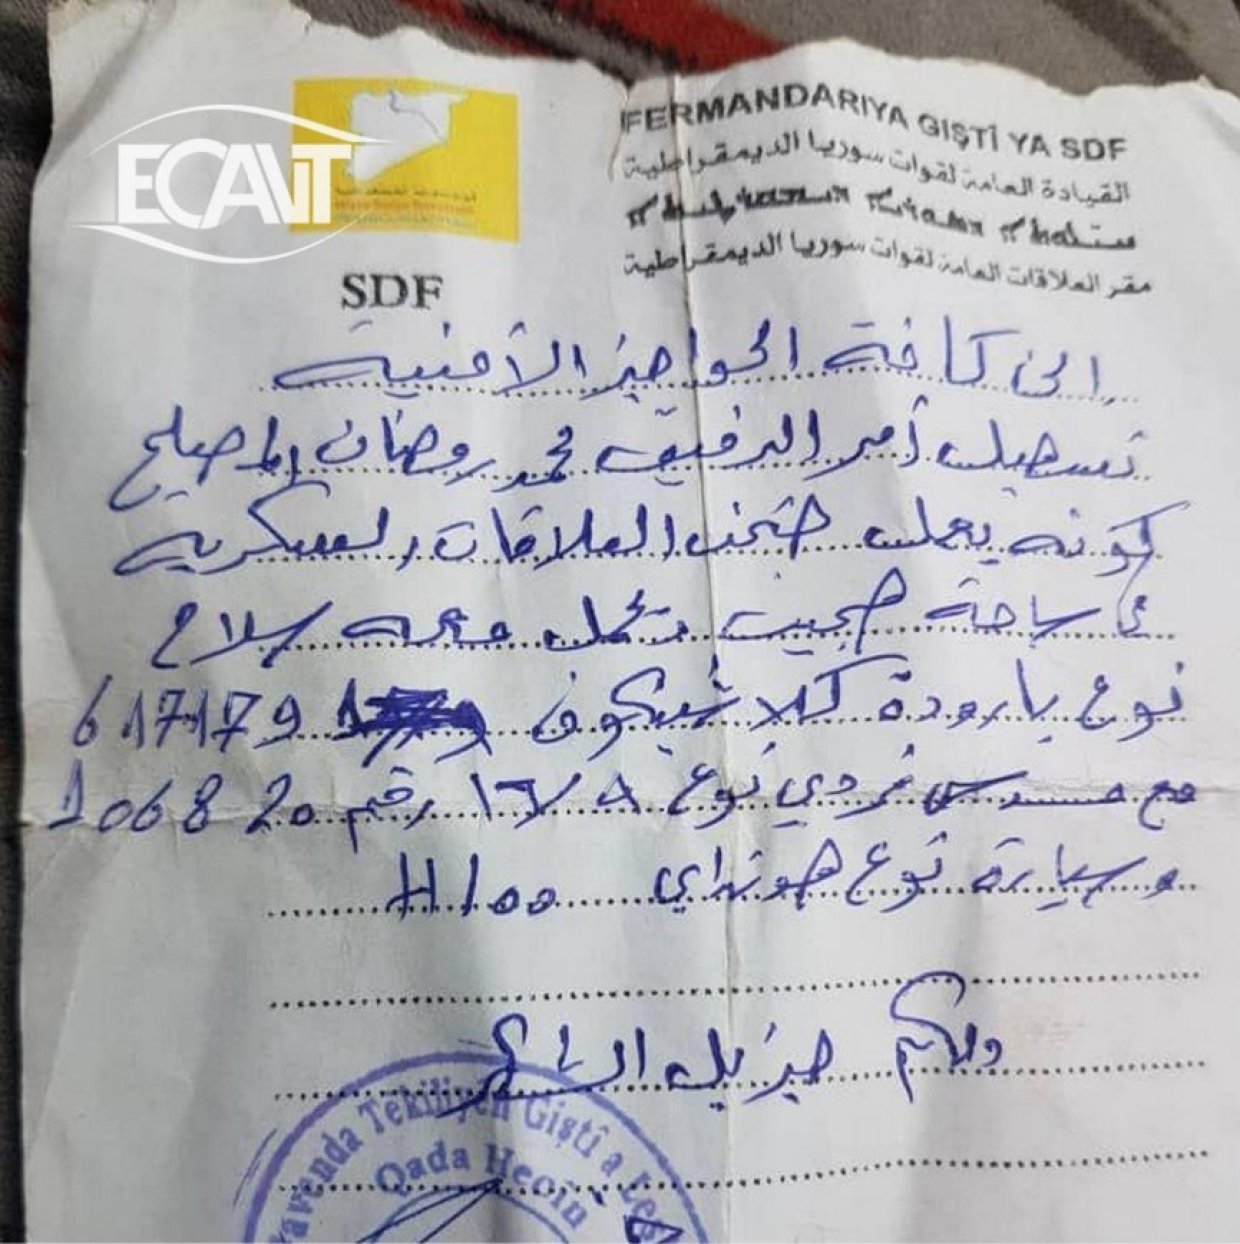 ECAVIT
FERMANDARIYA GIŞTÎ YA SDF
القيادة العامة لقوات سوريا الديمقراطية
مقر العلاقات العامة لقوات سوريا الديمقراطية
SDF
إلى كافة الحواجز الأمنية
تسهيل أمر الرفيق محمد رمضان المصلح
كونه يعمل ضمن العلاقات العسكرية
في ساحة هجين يحمل معه سلاح
نوع بارودة كلاشنيكوف 617179
مع مسدس فردي نوع رقم 106820
وسيارة نوع هونداي H100
ولكم جزيل الشكر
Tekiliyên Giştî a Leş
Qada Hecîn